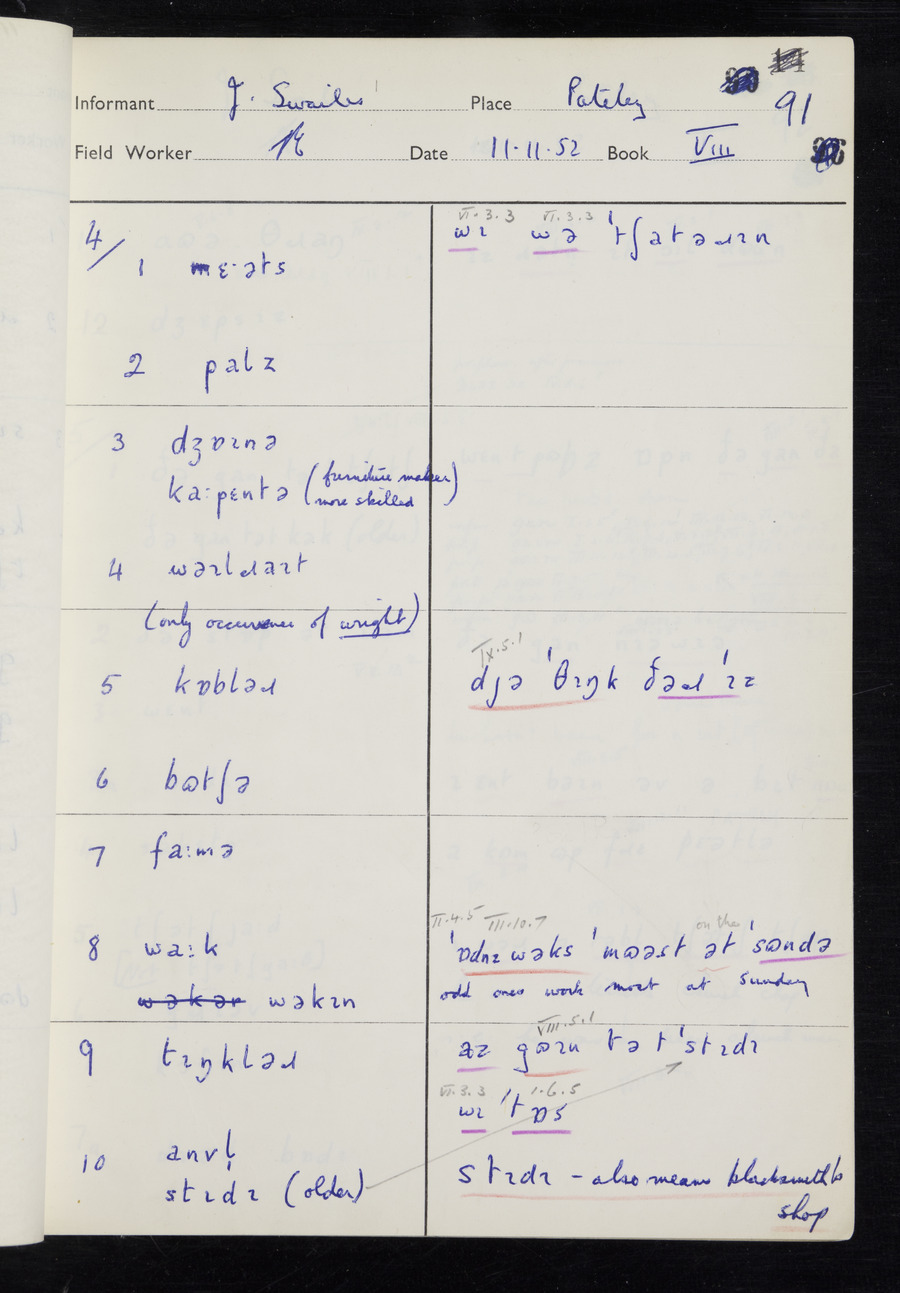 Informant J. Swailes Place Pateley 91
Field Worker Date 11·11·52 Book VIII
4/
1 mɛ·əts
2 palz
3 dʒɒɪnə
ka:pɛntə (furniture maker
more skilled)
4 wəɪlɹaɪt
(only occurrence of wright)
5 kɒbləɹ
6 bʊtʃə
7 fa:mə
8 wa:k
wəkər wəkɪn
9 tɪŋkləɹ
10 anvl̩
stɪdɪ (older)
VI·3.3 VI.3.3
wɪ wə ˈtʃatəɹɪn
IX.5.1
djə ˈθɪŋk ðəɹ ˈɪz
II.4.5 III.10.7 on the
ˈɒdnz wəks ˈmʊəst ət ˈsʊndə
odd ones work most at Sunday
VIII.5.1
az gʊɪn tə t ˈstɪdɪ
VI.3.3 1.6.5
wɪ ˈtɒs
stɪdɪ – also means blacksmith's
shop